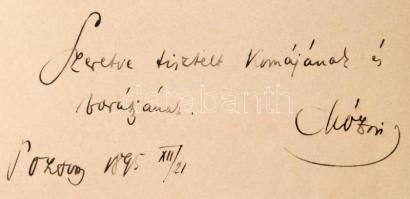 Szeretve tisztelt Komájának és
barátjának.
Pozsony 1895 XII/21